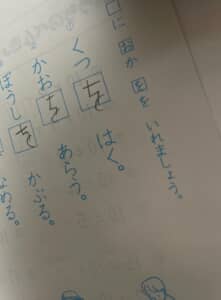 □に お か を を いれましょう。
くつ を はく。
かお を あらう。
ぼうし を かぶる。
なめる。